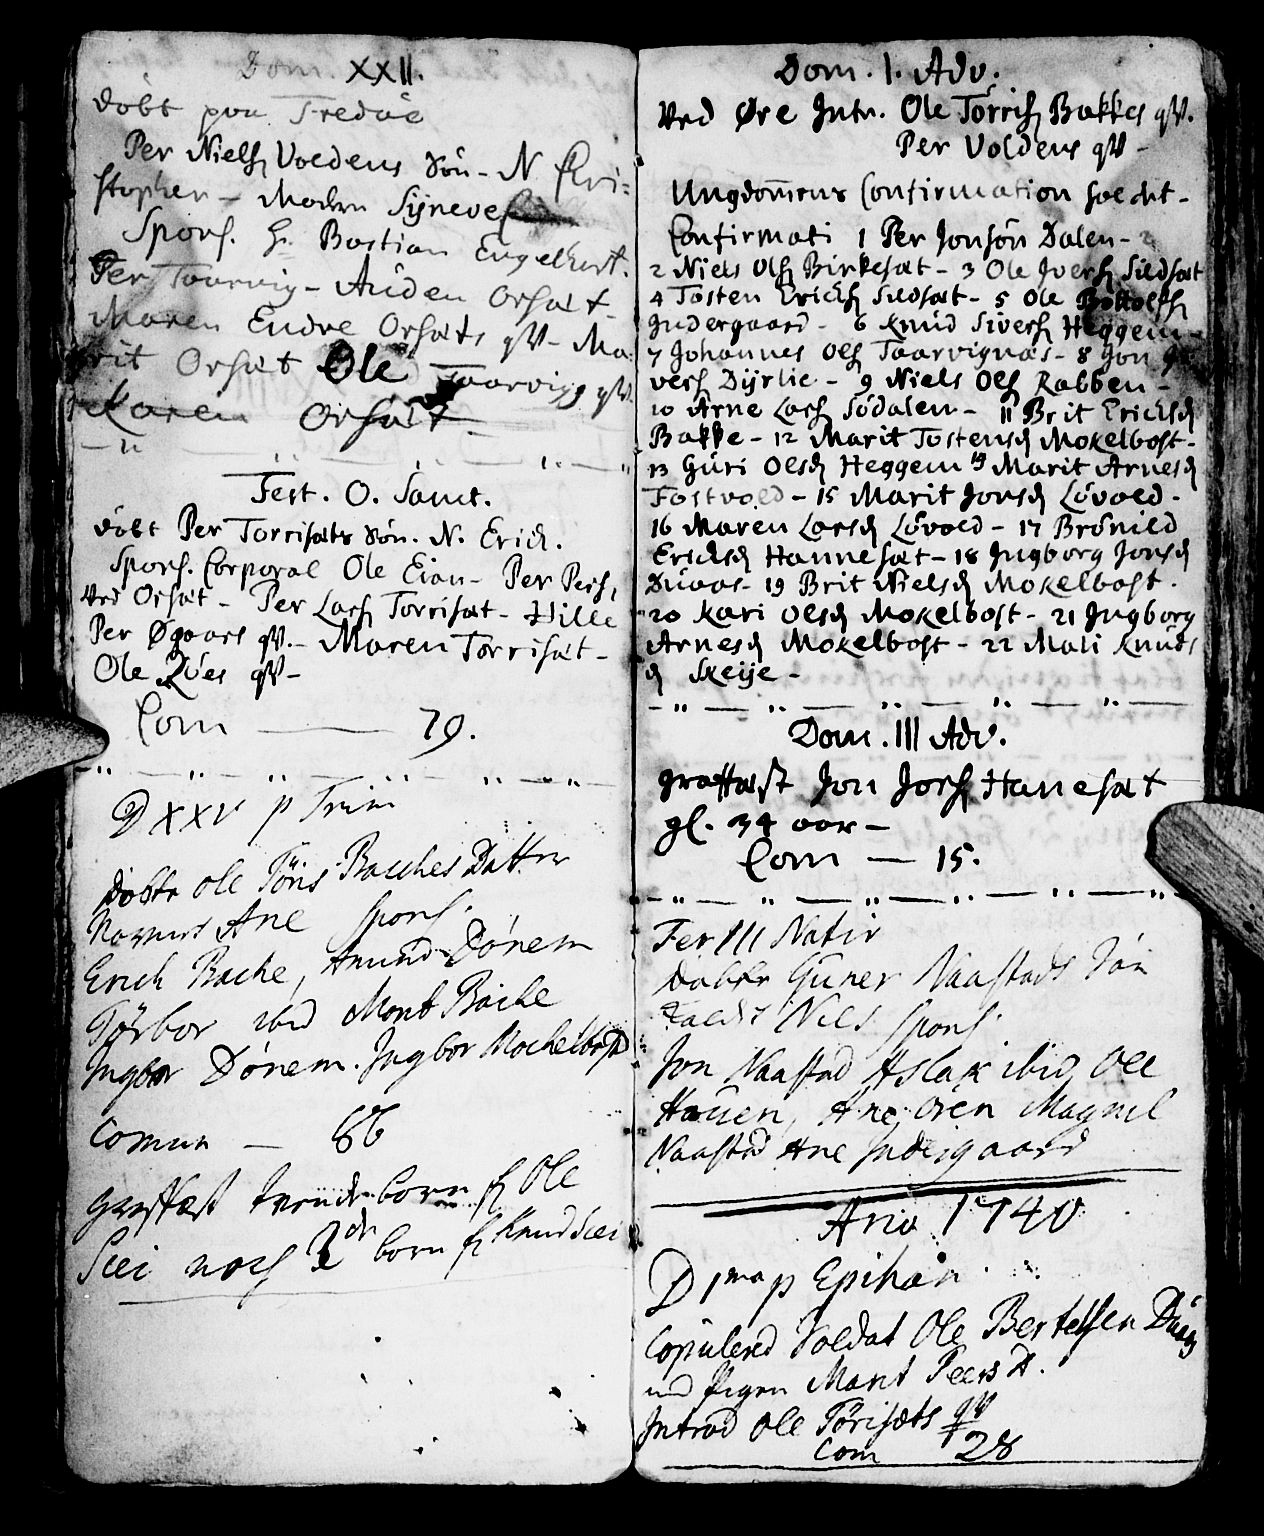 Dom. XXII.
døbt paa Tredøe
Per Nielsøn Voldens søn - N Chri-
stopher - Modren Sÿneve
Spons. Hr. Bastian Engelhert.
Per Taarvig - Auden Orsæt -
Maren Endre Orsæts qV - Ma-
rit Orsæt Ole Taarvigs qV.
Karen Orsæt
Fest. O. Sanct.
døbt Per Torrisæts søn. N. Erich.
Spons. Corporal Ole Eian - Per Pers,
Ved Orsæt - Per Lars Torrisæt - Hille
Per Øgaars qV. - Maren Torrisæt -
Ole Røes qV -
Com — 79.
D XXV p Trin
Døbte Ole Töris Bacches Datter
Navnes Ane Spons.
Erich Bache, Amund Dønem
Törbor ibid Marit Bache
Ingbor Dønem. Ingbor Mochelbost
Comun — 66
Græffæst tvende born f Ole
Siei noch 3de born f Knud Siei
Dom. 1. Adv.
Ved Øre Intr. Ole Torris Bakkes qV.
Per Voldens qV -
Ungdommens Confirmation holdt -
Confirmati 1 Per Jonsøn Dalen -
2 Niels Ols Birkesæt - 3 Ole Ivers Sildsæt
4 Tosten Erichs Sildsæt - 5 Ole Bottolfs
Indergaard - 6 Knud Sivers Heggem -
7 Johannes Ols Taarvignæs - 8 Jon
vers Dÿrlie - 9 Niels Ols Rabben -
10 Arne Lars Södalen - 11 Brit Ericksd
Bakke - 12 Marit Tostensd Mokelbost -
13 Guri Olsd Heggem 14 Marit Arnesd
Fostvold - 15 Marit Jonsd Lövold -
16 Maren Larsd Lövold - 17 Brönild
Ericksd Hannesæt - 18 Ingborg Jonsd
Duaas - 19 Brit Nielsd Mokelbost.
20 Kari Olsd Mokelbost - 21 Ingborg
Arnesd Mokelbost - 22 Mali Knuds
d Skeije -
Dom. III Adv.
græffæst Jon Jors Hanesæt
gl. 34 aar -
Com — 15.
Fer III Nativ
Døbte Guner Naastads Søn
Kaldet Nils Spons.
Jon Naastad Aslak ibid, Ole
Hauen, Ane Øren Magnil
Naastad Ane Indergaard
Ano 1740
D 1ma p Epihan
Copulered Soldat Ole Bertelsen Duaas
med Pigen Marit Peers D.
Introd Ole Törisæts qV
Com 28